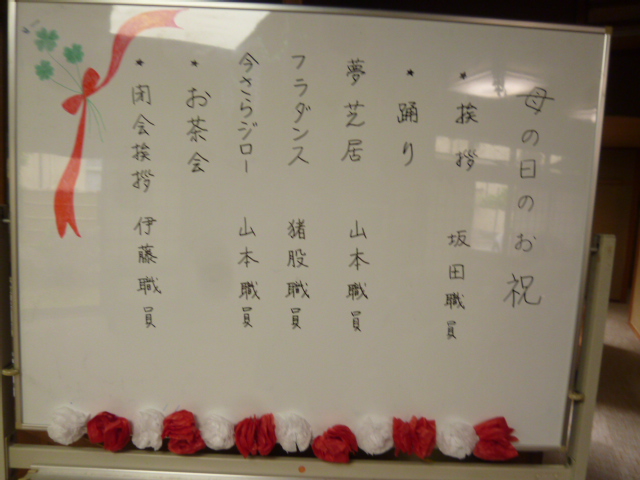 母の日のお祝
*挨拶 坂田職員
*踊り
夢芝居 山本職員
フラダンス 猪股職員
今さらジロー 山本職員
*お茶会
*閉会挨拶 伊藤職員